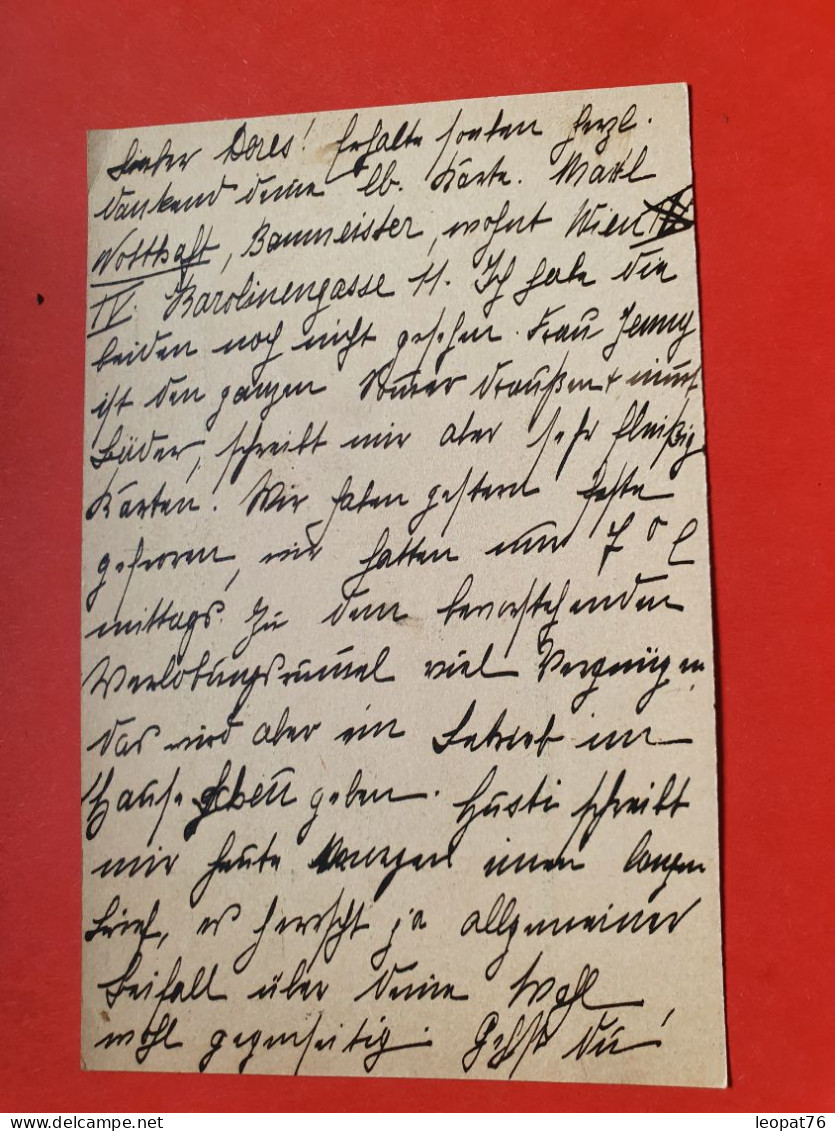 Lieber Dores! Erhalte soeben herzl.
dankend deine lb. Karte. Markl
Notthaft, Baumeister, wohnt Wien
IV. Karolinengasse 11. Ich habe die
beiden noch nicht gesehen. Frau Jenny
ist den ganzen Sommer draußen + nimmt
Bäder, schreibt mir aber sehr fleißig
Karten. Wir haben gestern feste
gefroren, wir hatten nur 7° C
mittags. Zu dem bevorstehenden
Verlobungsrummel viel Vergnügen
das wird aber ein Betrieb im
Hause geben. Gusti schreibt
mir heute einen langen
Brief, es herrscht ja allgemeiner
Beifall über deine Wahl
wohl gegenseitig. Gehst du!
leopat76